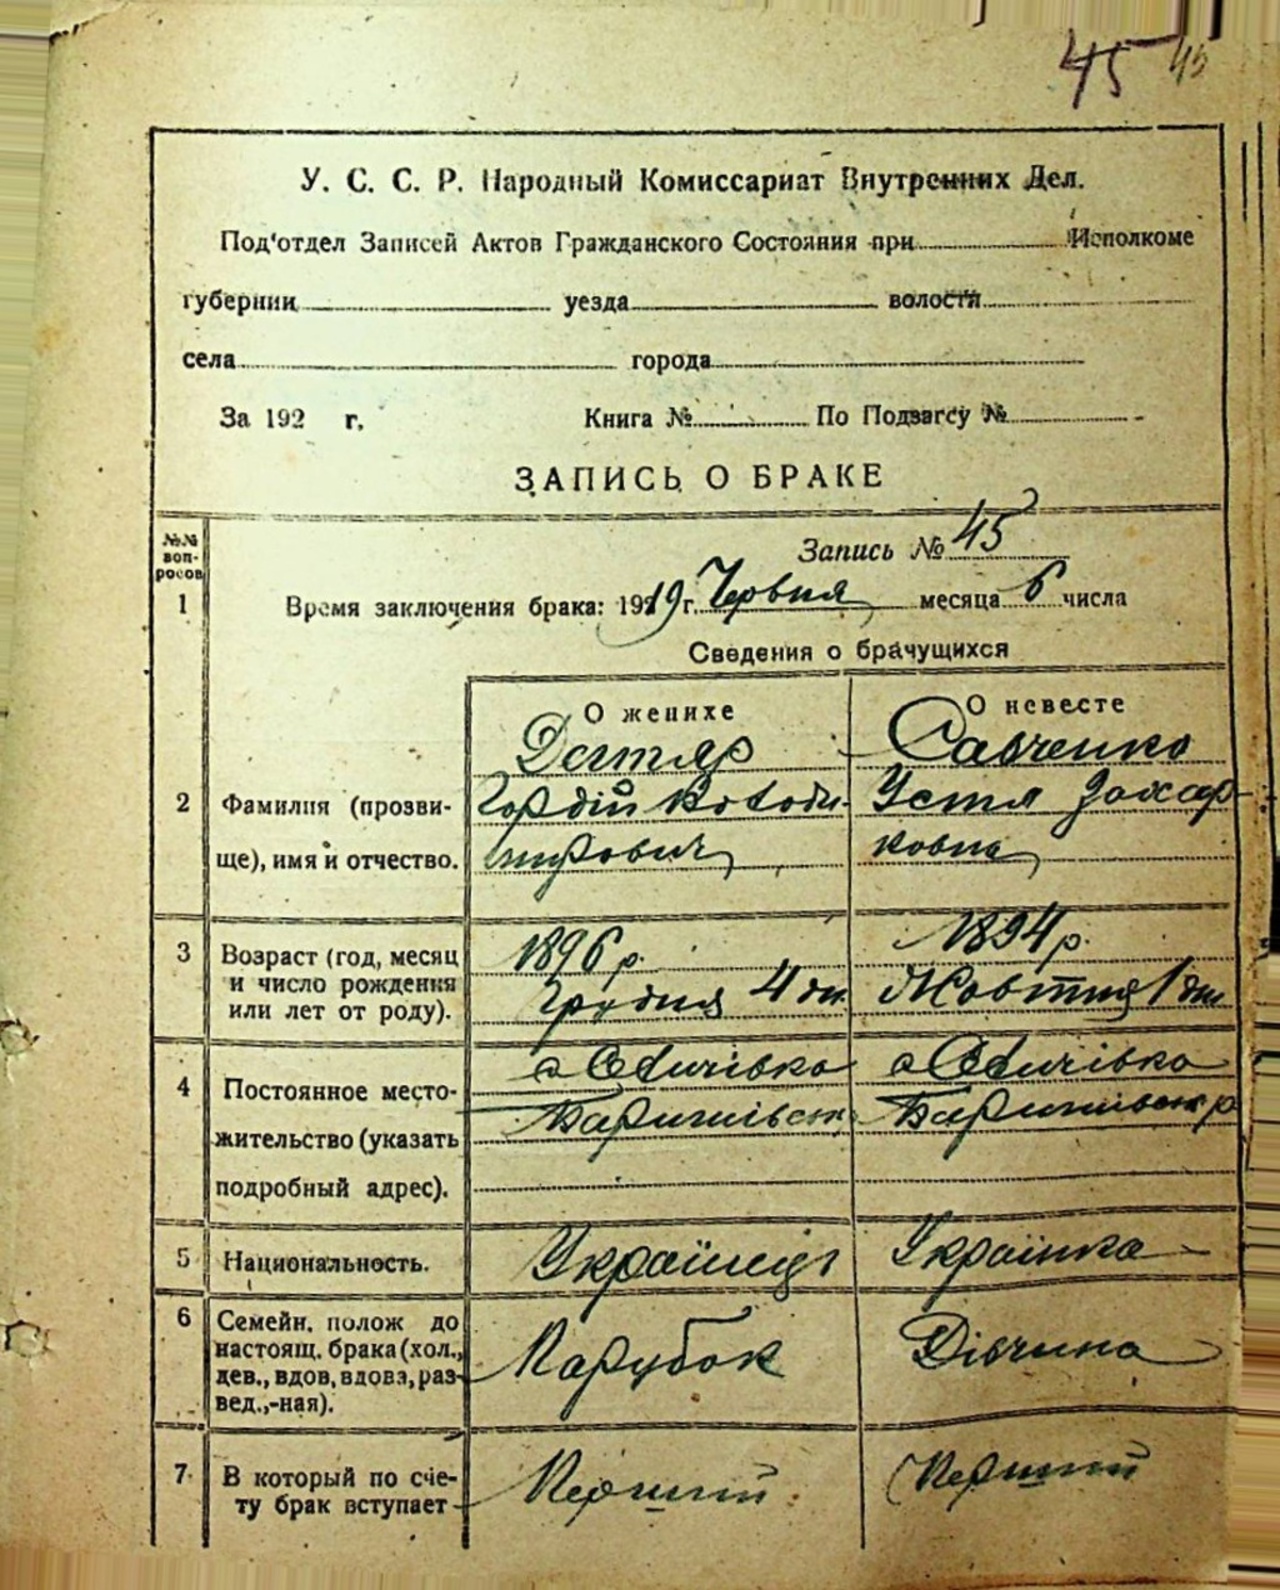 45 45
У. С. С. Р. Народный Комиссариат Внутренних Дел.
Под'отдел Записей Актов Гражданского Состояния при Исполкоме
губернии уезда волости
села города
За 192 г. Книга № По Подзагсу №
ЗАПИСЬ О БРАКЕ
№№ воп-
росов
Запись № 45
1 Время заключения брака: 1919 г. Червня месяца 6 числа
Сведения о брачущихся
О женихе О невесте
Дегтяр Савченко
2 Фамилия (прозви- Гордій Володи- Устя Захар-
ще), имя и отчество. мирович ковна
3 Возраст (год, месяц 1896 р. 1894 р.
и число рождения Грудня 4 дн. Жовтня 1 дня
или лет от роду).
4 Постоянное место-
жительство (указать Баришівськ Баришівськ р
подробный адрес).
5 Национальность. Українець Українка
6 Семейн. полож до
настоящ. брака (хол., Парубок Дівчина
дев., вдов, вдова, раз-
вед.,-ная).
7 В который по сче- Перший Перший
ту брак вступает